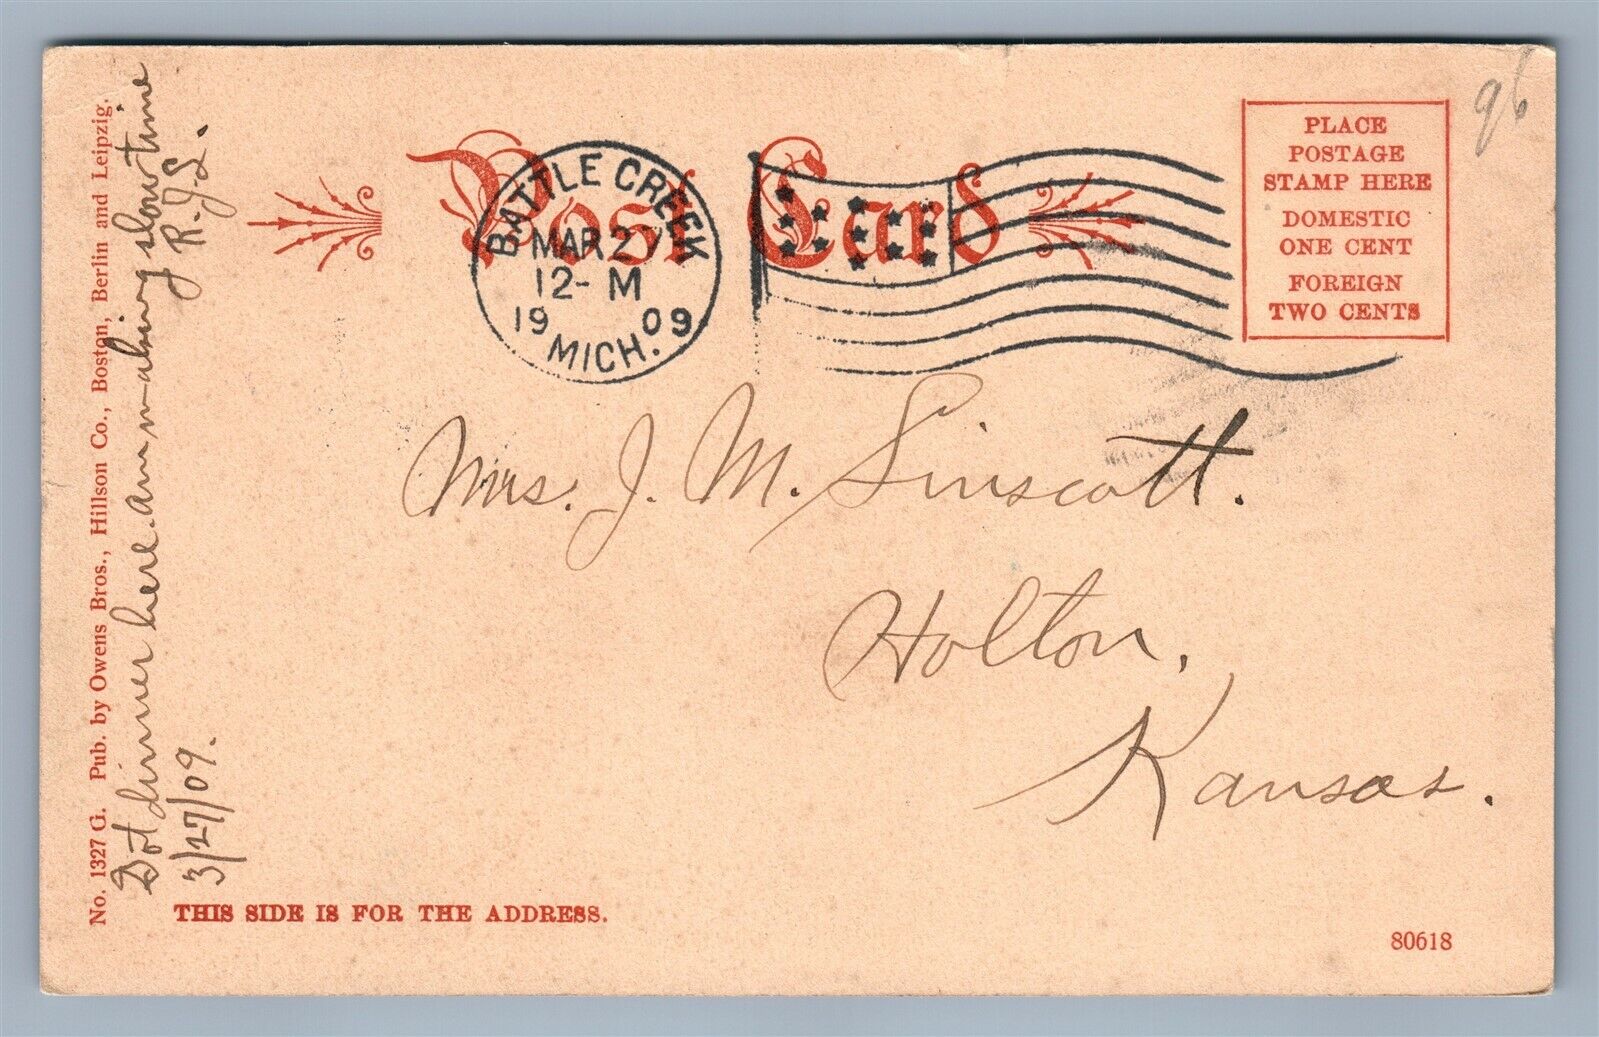 Post Card
BATTLE CREEK
MAR 27
12- M
19 09
MICH.
PLACE
POSTAGE
STAMP HERE
DOMESTIC
ONE CENT
FOREIGN
TWO CENTS
96
Mrs. J. M. Linscott.
Holton,
Kansas.
No. 1327 G. Pub. by Owens Bros., Hillson Co., Boston, Berlin and Leipzig.
Got dinner here. am making slow time
3/27/09. R.J.L.
THIS SIDE IS FOR THE ADDRESS.
80618